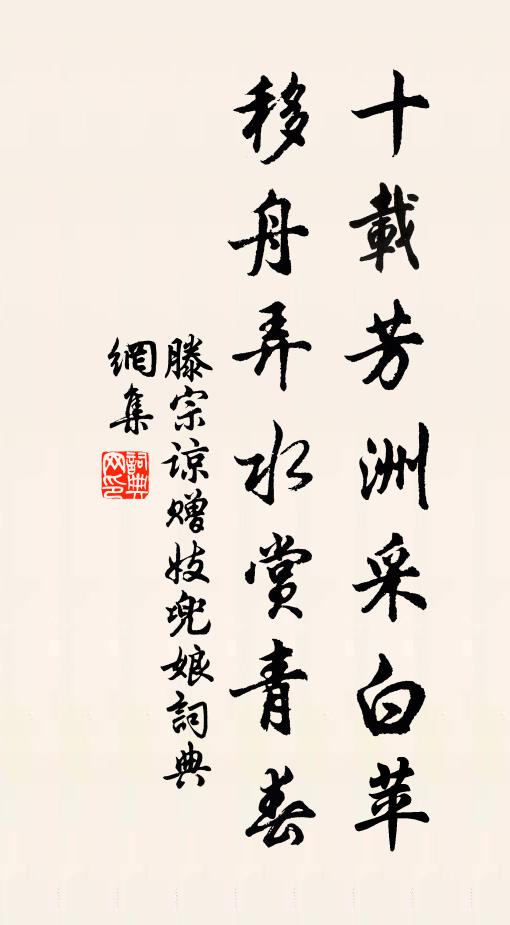 十載芳洲采白苹
移舟弄水賞青春
滕宗諒贈妓兜娘詞典
網集
詞典網印